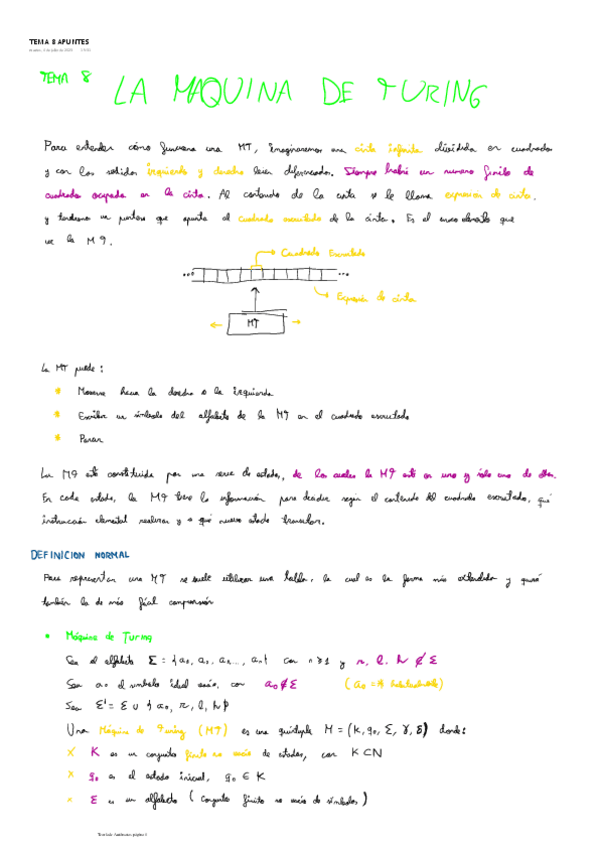 TEMA 8 APUNTES
TEMA 8
LA MAQUINA DE TURING
Para entender cómo funciona una MT, imaginaremos una cinta infinita dividida en cuadrados
y con los sentidos izquierda y derecha bien diferenciados. Siempre habrá un numero finito de
cuadrados ocupada en la cinta. Al contenido de la cinta se le llama expresion de cinta.
y tendremos un puntero que apunta al cuadrado escrutado de la cinta. Es el único elemento que
ve la MT.
Cuadrado Escrutado
Expresión de cinta
MT
La MT puede:
Moverse hacia la derecha o la izquierda
Escribir un símbolo del alfabeto de la MT en el cuadrado escrutado
Parar
La MT está constituida por una serie de estados, de los cuales la MT está en uno y solo uno de ellos.
En cada estado, la MT tiene la información para decidir según el contenido del cuadrado escrutado, qué
instrucción elemental realizar y a qué nuevo estado transitar.
DEFINICION NORMAL
Para representar una MT se suele utilizar una tabla, la cual es la forma más extendida y quizá
también la de más fácil comprensión
Máquina de Turing
Sea el alfabeto Σ = {a₁, a₂, ..., aₙ} con n≥1 y r, l, h ∉ Σ
Sea a₀ el símbolo ideal vacío, con a₀ ∉ Σ (a₀ = # habitualmente)
Sea Σ' = Σ ∪ {a₀, r, l, h}
Una Máquina de Turing (MT) es una quíntupla M = (K, q₀, Σ, γ, δ) donde:
K es un conjunto finito no vacío de estados, con K ⊂ N
q₀ es el estado inicial, q₀ ∈ K
Σ es un alfabeto (Conjunto finito no vacío de símbolos)